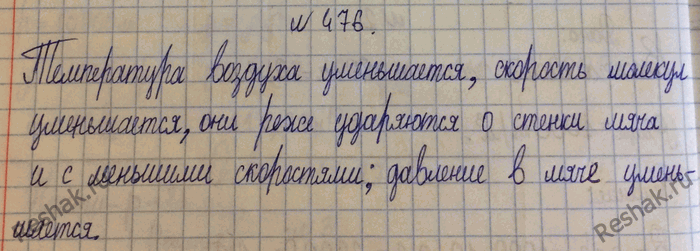 № 476.
Температура воздуха уменьшается, скорость молекул
уменьшается, они реже ударяются о стенки мяча
и с меньшими скоростями; давление в мяче умень-
шается.
Reshak.ru
Reshak.ru